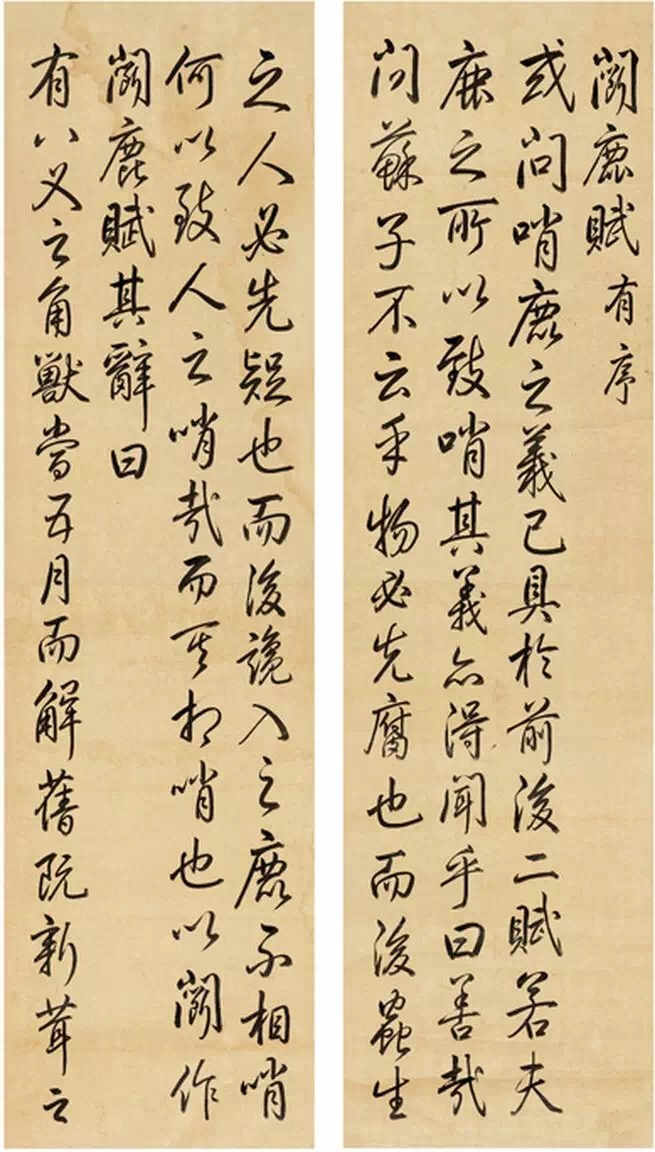 鬭鹿賦有序
或問哨鹿之義已具於前後二賦若夫
鹿之所以致哨其義亦得聞乎曰善哉
問蘇子不云乎物必先腐也而後蟲生
之人必先疑也而後讒入之鹿不相哨
何以致人之哨哉而其相哨也以鬭作
鬭鹿賦其辭曰
有八叉之角獸當五月而解舊既新茸之